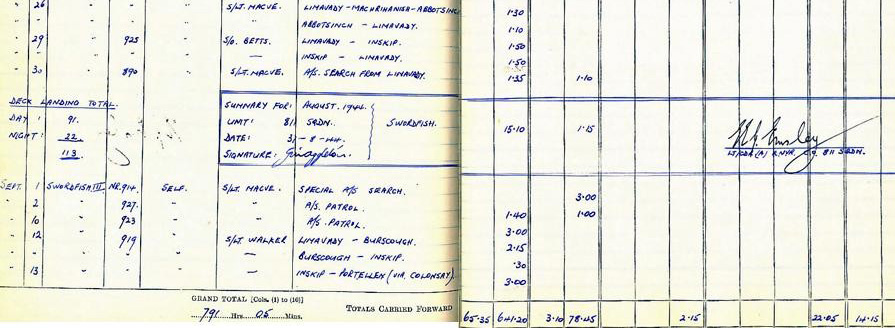 " 26 " " S/LT. MACVE. LIMAVADY - MACHRIHANISH - ABBOTSINCH 1.30
" " " " " ABBOTSINCH - LIMAVADY. 1.10
" 29 " 925 S/O. BETTS. LIMAVADY - INSKIP. 1.50
" " " " — INSKIP - LIMAVADY. 1.50
" 30 " 890 S/LT. MACVE. A/S. SEARCH FROM LIMAVADY. 1.35 1.10
DECK LANDING TOTAL.
DAY : 91.
NIGHT : 22.
113
SUMMARY FOR: AUGUST. 1944.
UNIT: 811 SQDN. SWORDFISH. 15.10 1.15
DATE: 31-8-44.
SIGNATURE:
LT/CDR (A) R.N.V.R. C.O. 811 SQDN.
SEPT. 1 SWORDFISH III. NR. 914. SELF. S/LT. MACVE. SPECIAL A/S SEARCH. 3.00
" 2 " 927. " " A/S. PATROL. 1.40 1.00
" 10 " 923 " " A/S. PATROL. 3.00
" 12 " 919 " S/LT WALKER LIMAVADY - BURSCOUGH. 2.15
" " " " " — BURSCOUGH - INSKIP. .30
" 13 " " " — INSKIP - PORTELLEN (VIA. COLONSAY) 3.00
GRAND TOTAL [Cols. (1) to (10)]
791 Hrs. 05 Mins.
TOTALS CARRIED FORWARD 65.35 641.20 3.10 78.45 2.15 22.05 14.15